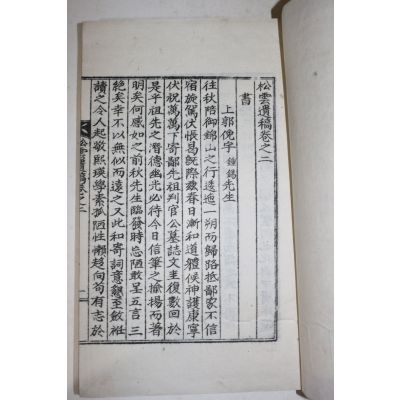 松雲遺稿卷之二
書
上郭俛宇鍾錫先生
往秋陪御錦山之行逶迤一朔而歸路抵鄙家不信
宿旋駕伏悵曷旣際玆春日漸和道體候神護康寧
伏祝萬萬下寄鄙先祖判官公墓誌文圭復數回於
是乎先祖之潛德幽光必待今日信筆之揄揚而著
明矣何感如之前秋先生臨發時忘陋敢呈五言三
絶矣幸不以無似而遠之又此和寄詞意懇至斂袵
讀之令人起敬熙瑛學素孤陋性懶趨向苟有志於
松雲遺稿卷之二
一